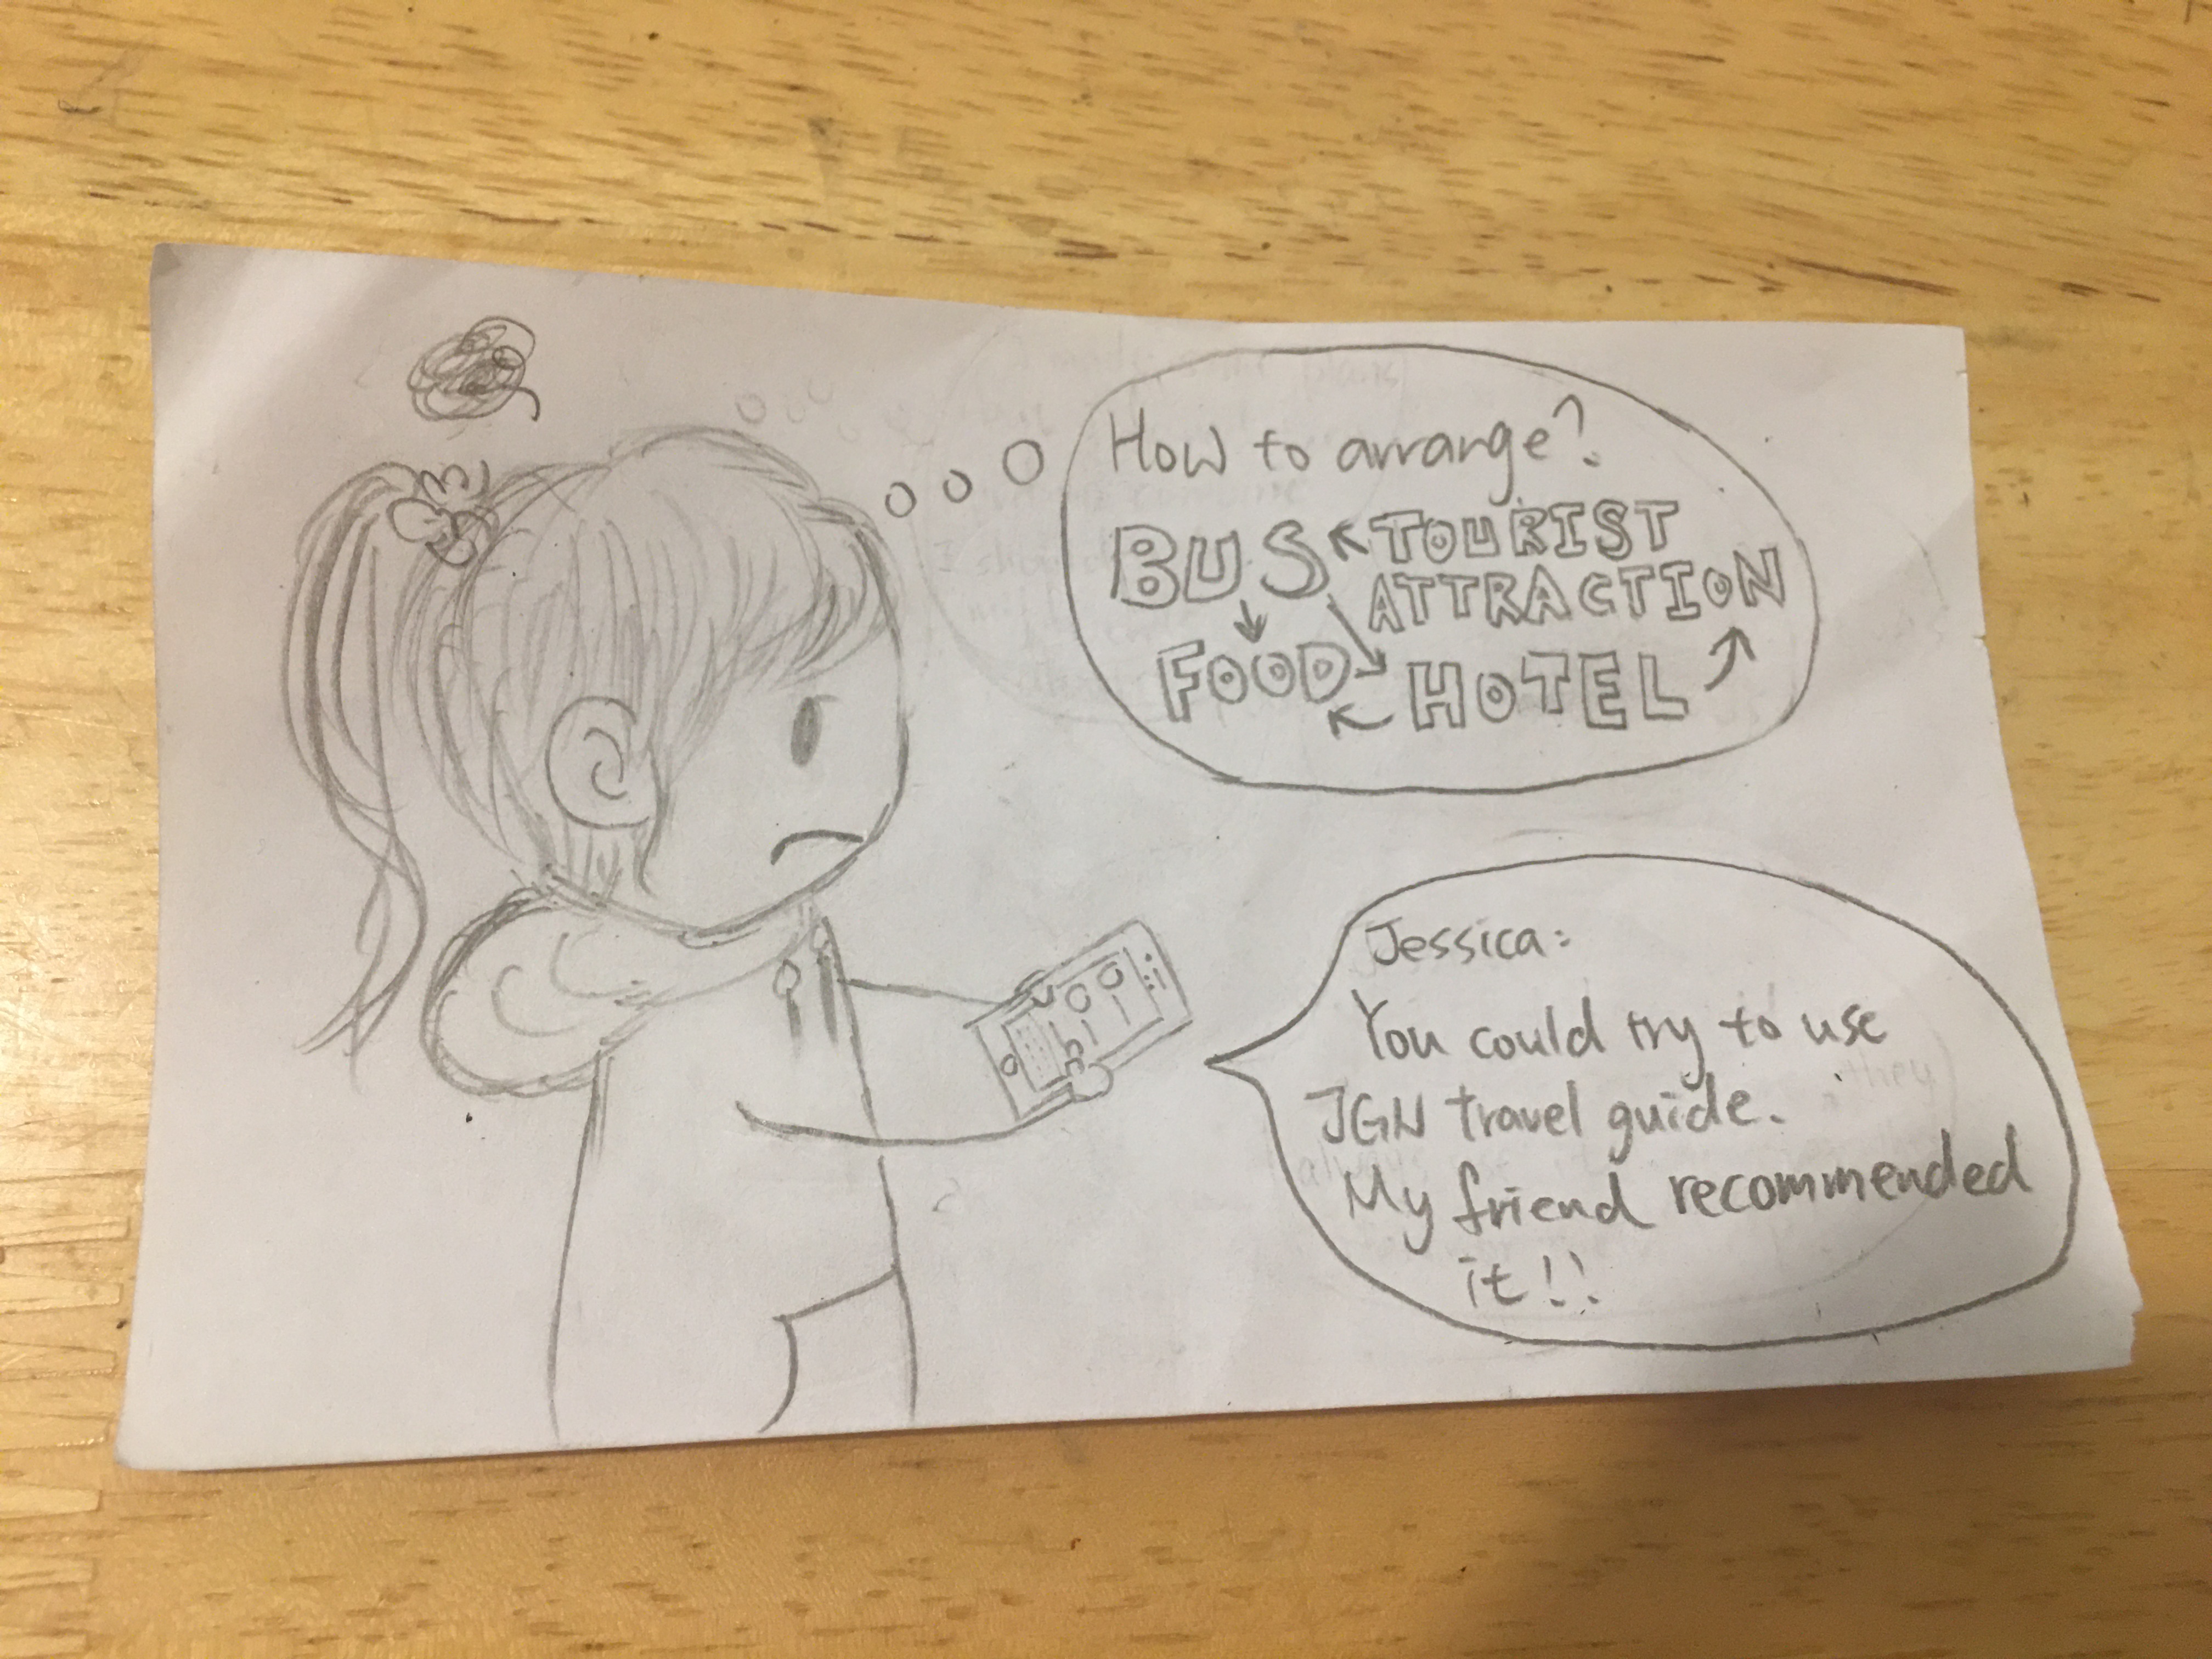 How to arrange?
BUS TOURIST
ATTRACTION
FOOD HOTEL
Jessica:
You could try to use
JGN travel guide.
My friend recommended
it!!
they